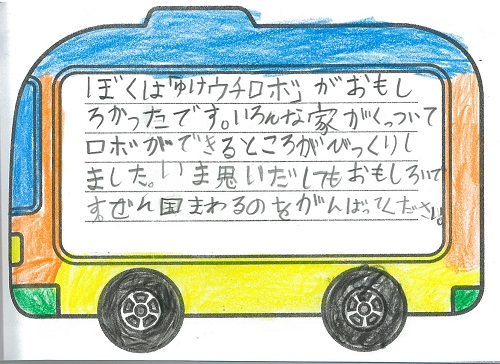 ぼくは「ゆけウチロボ」がおもし
ろかったです。いろんな家がくっついて
ロボができるところがびっくりし
ました。いま思いだしてもおもしろいで
す。ぜん国まわるのをがんばってください。